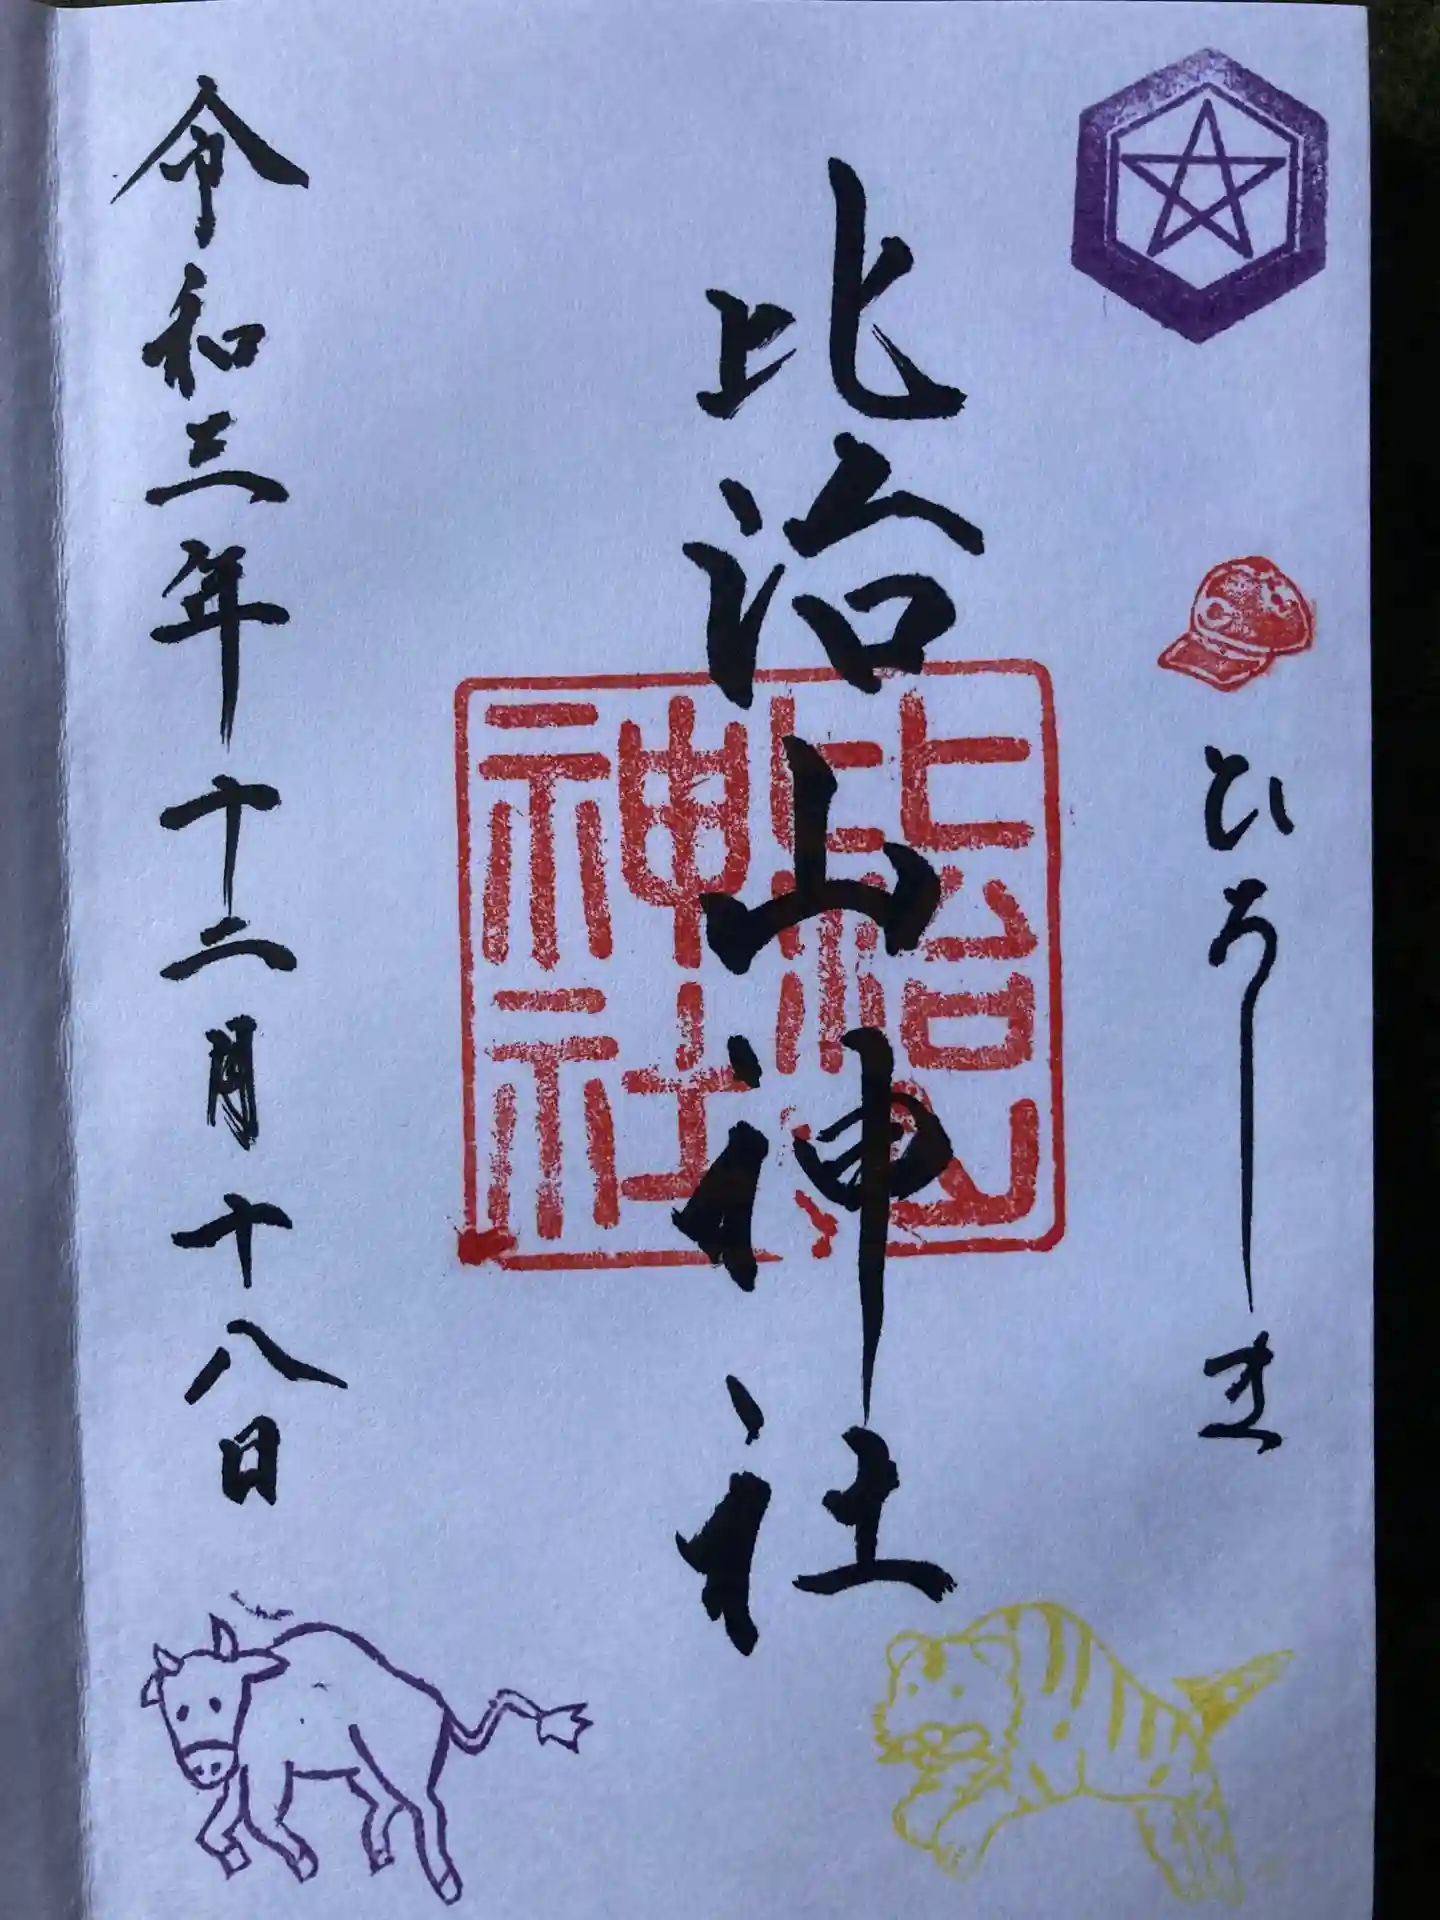 ひろしま
比治山神社
比治山神社
令和三年十二月十八日